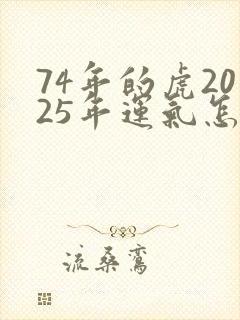 74年的虎20
25年運氣怎
流桑鸞